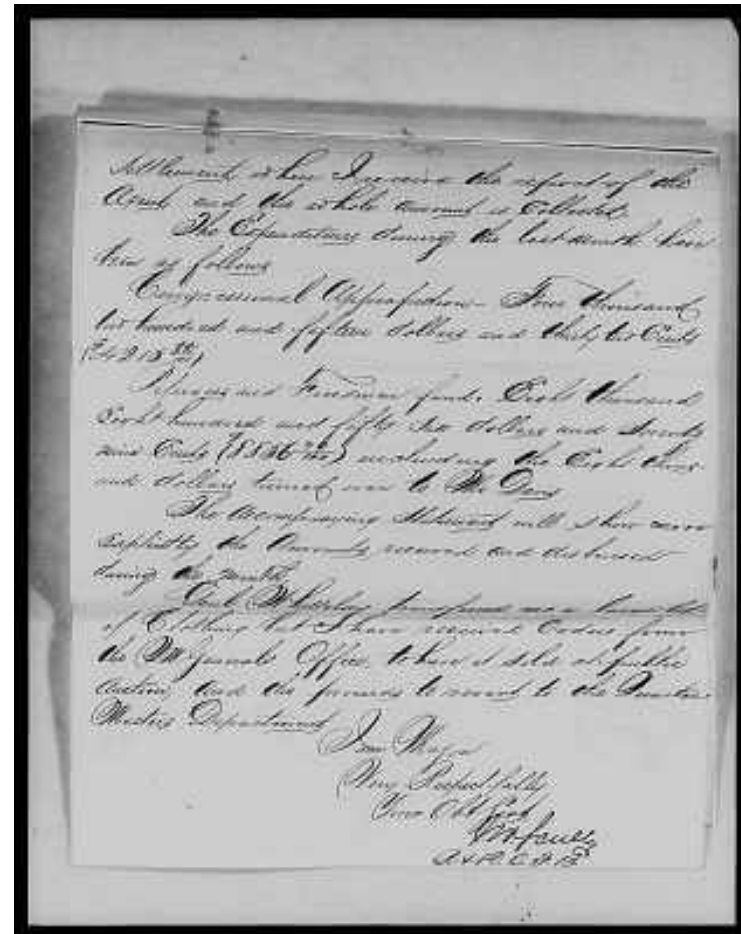 Settlement when I receive the report of the
Agent and the whole amount is Collected.
The Expenditures during the last month have
been as follows
Congressional Appropriation - Four thousand
two hundred and fifteen dollars and thirty two Cents
Refugees and Freedmen fund. Eight thousand
Eight hundred and fifty six dollars and Seventy
nine Cents including the Eight thous
and dollars turned over to
The Accompanying Statement will show more
explicitly the Amounts received and disbursed
during the month.
Capt transferred me a
of Clothing but I have received Orders from
the QM Generals Office, to have it sold at public
auction, and the proceeds to the Quarter
Masters Department
I am Major
Very Respectfully
Your Obt Servt